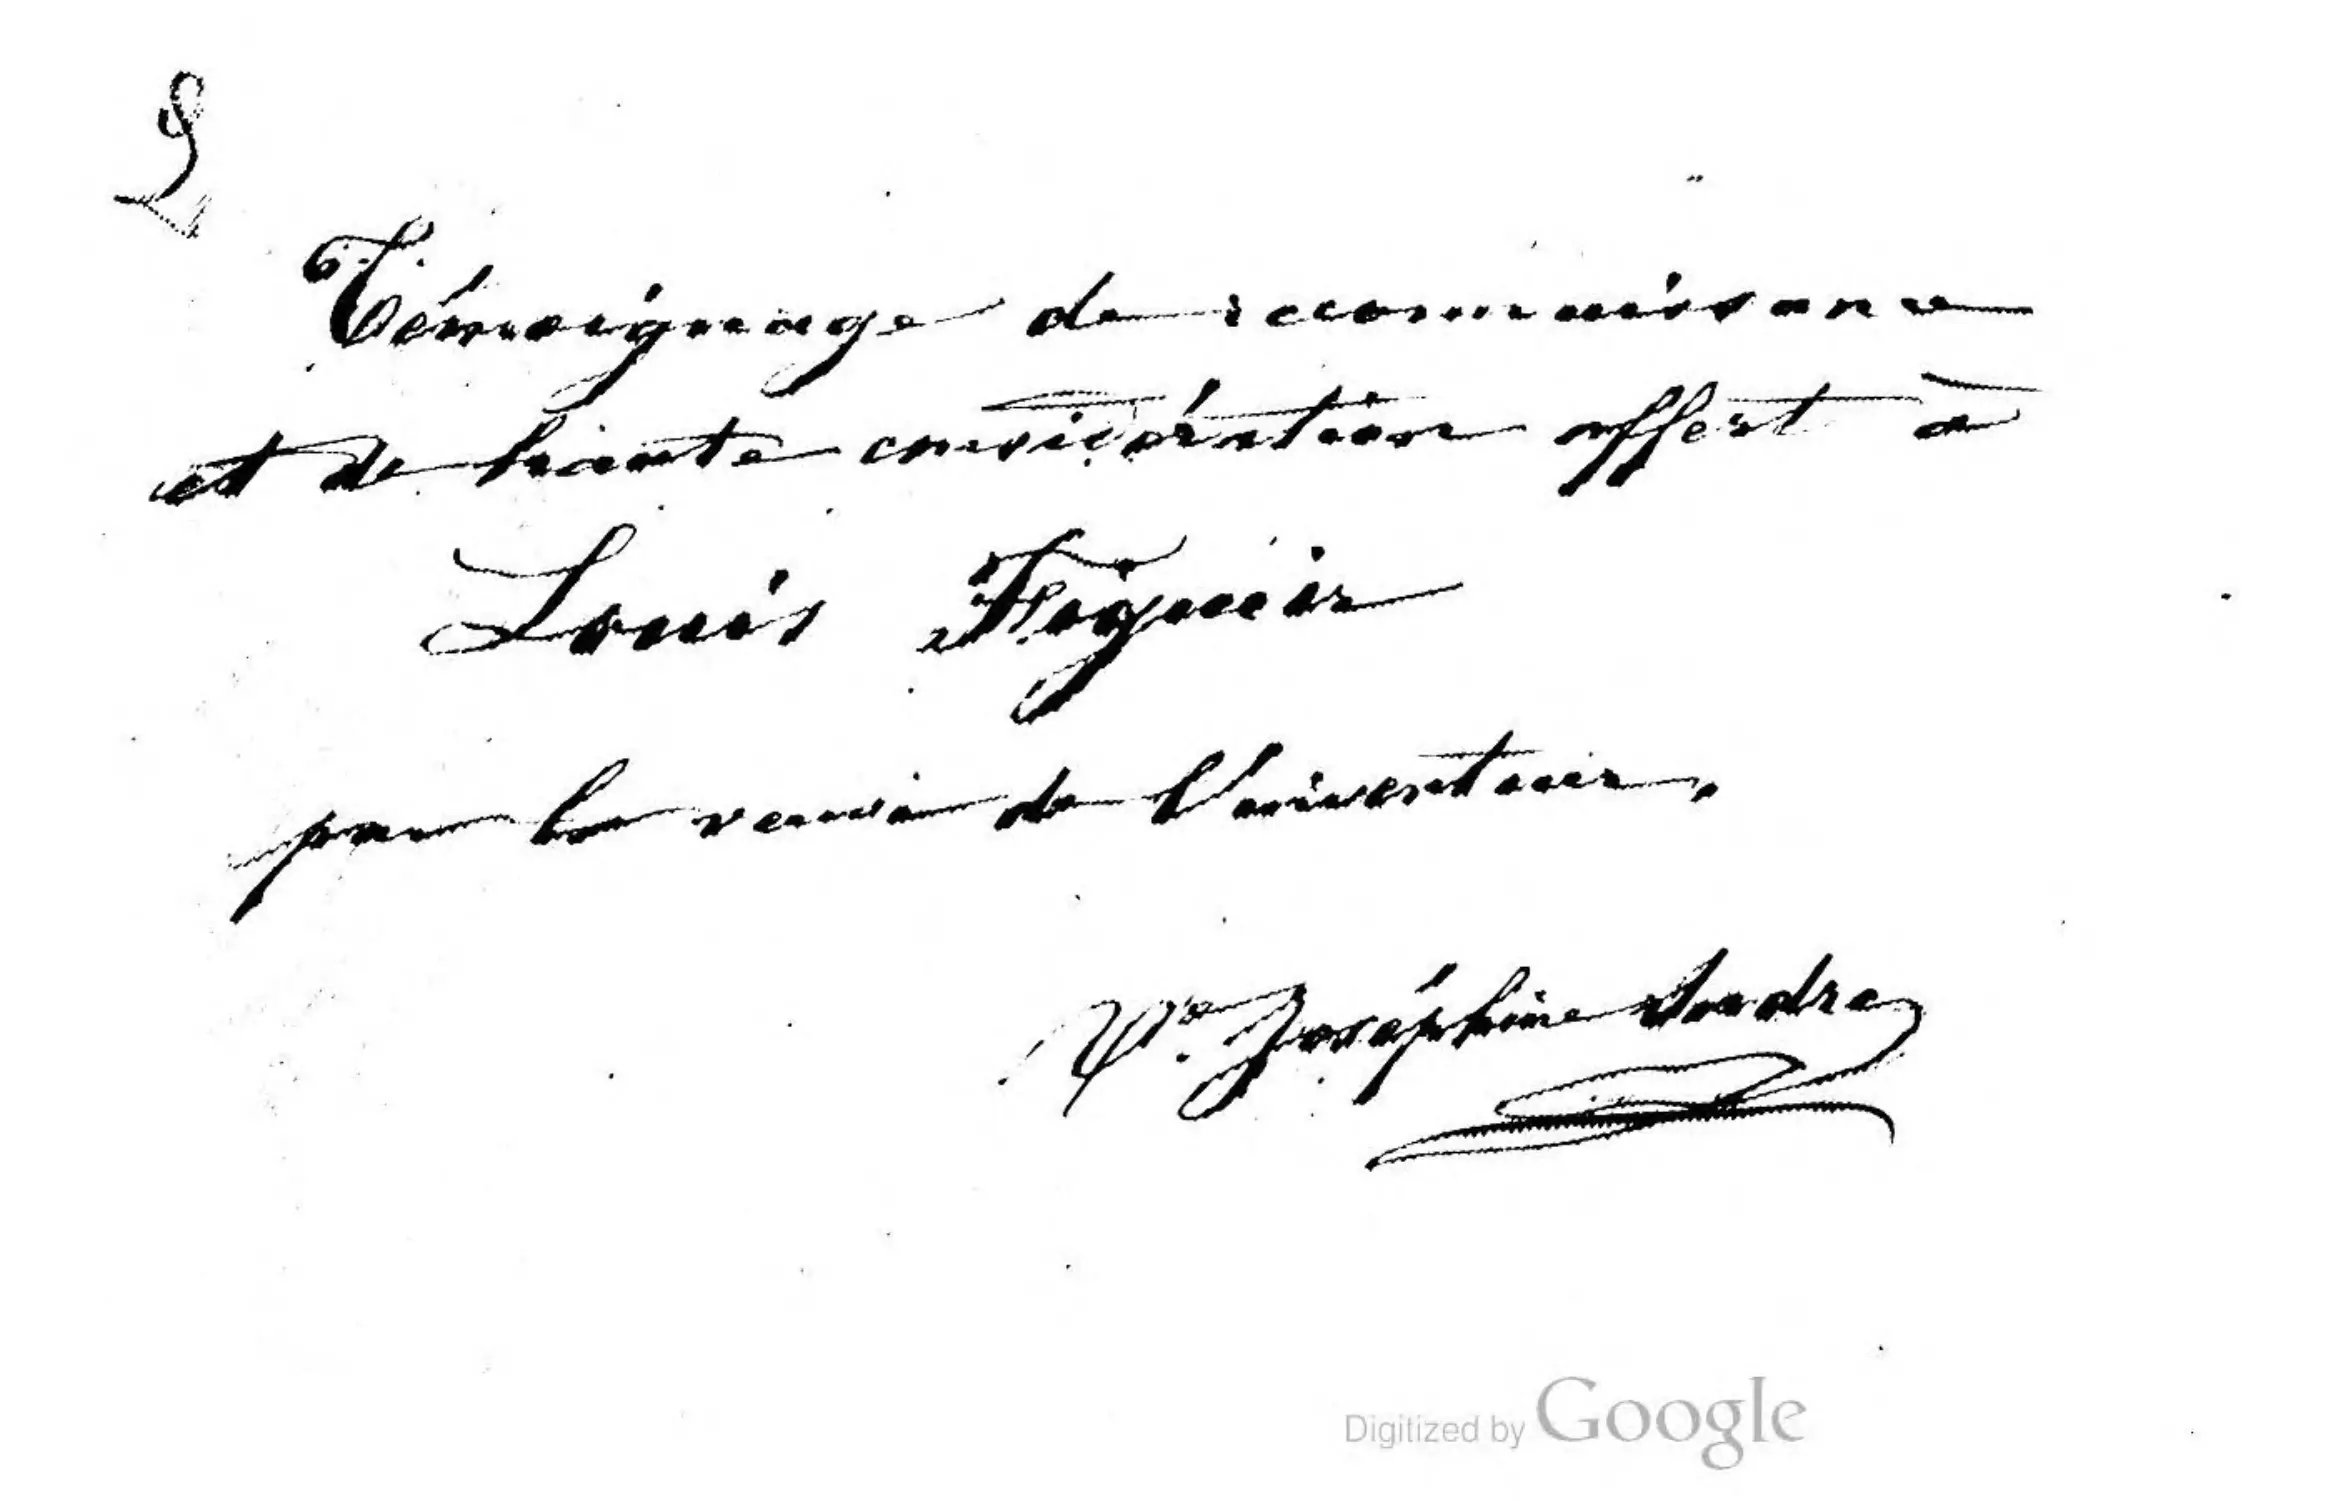 Témoignage de reconnaissance
et de haute considération offert à
Louis Figuier
par la veuve de l'inventeur,
Ve. Joséphine Andre
Digitized by Google